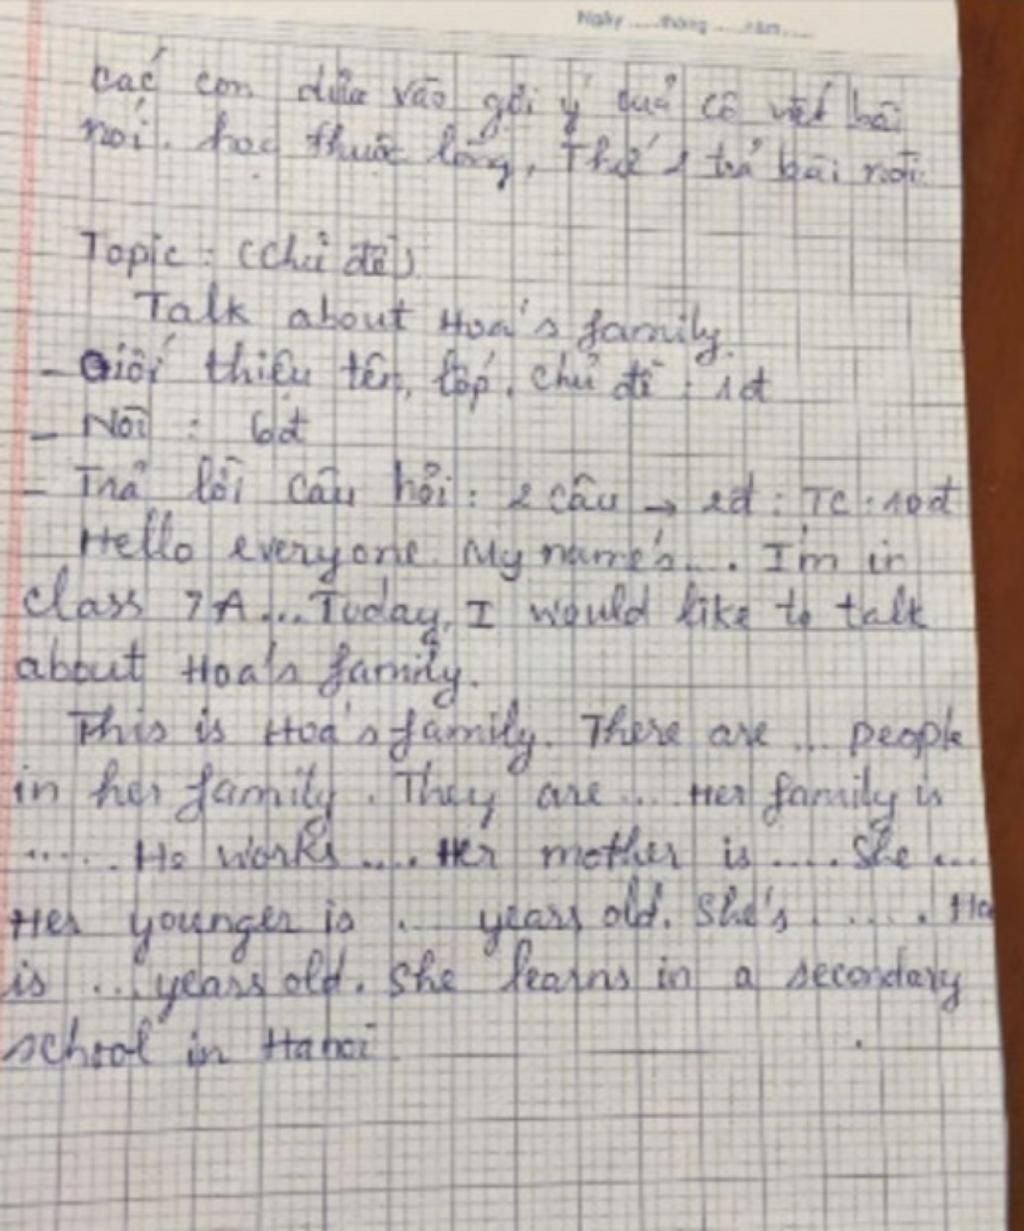 Ngày ..... tháng ..... năm.....
các con dựa vào gợi ý của cô viết bài
nói. học thuộc lòng, Thứ 2 trả bài nói.
Topic : (Chủ đề)
Talk about Hoa's family.
- Giới thiệu tên, lớp, chủ đề : 1đ
- Nói : 6đ
- Trả lời câu hỏi : 2 câu → 2đ : TC : 10đ
Hello everyone. My name's.... I'm in
class 7A... Today, I would like to talk
about Hoa's family.
This is Hoa's family. There are ... people
in her family. They are .... Her family is
...... He works .... Her mother is .... She ...
Her younger is ... years old. She's ..... Ho
is ... years old. She learns in a secondary
school in Hanoi